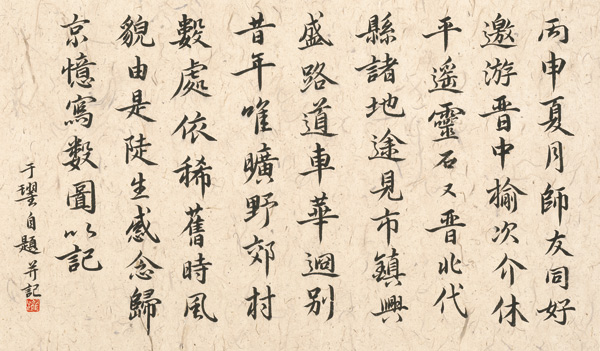 丙申夏月師友同好
邀游晋中榆次介休
平遥靈石又晋北代
縣諸地途見市鎮興
盛路道車華迴别
昔年唯曠野郊村
數處依稀舊時風
貌由是陡生感念歸
京憶寫數圖以記
于瓘自題并記